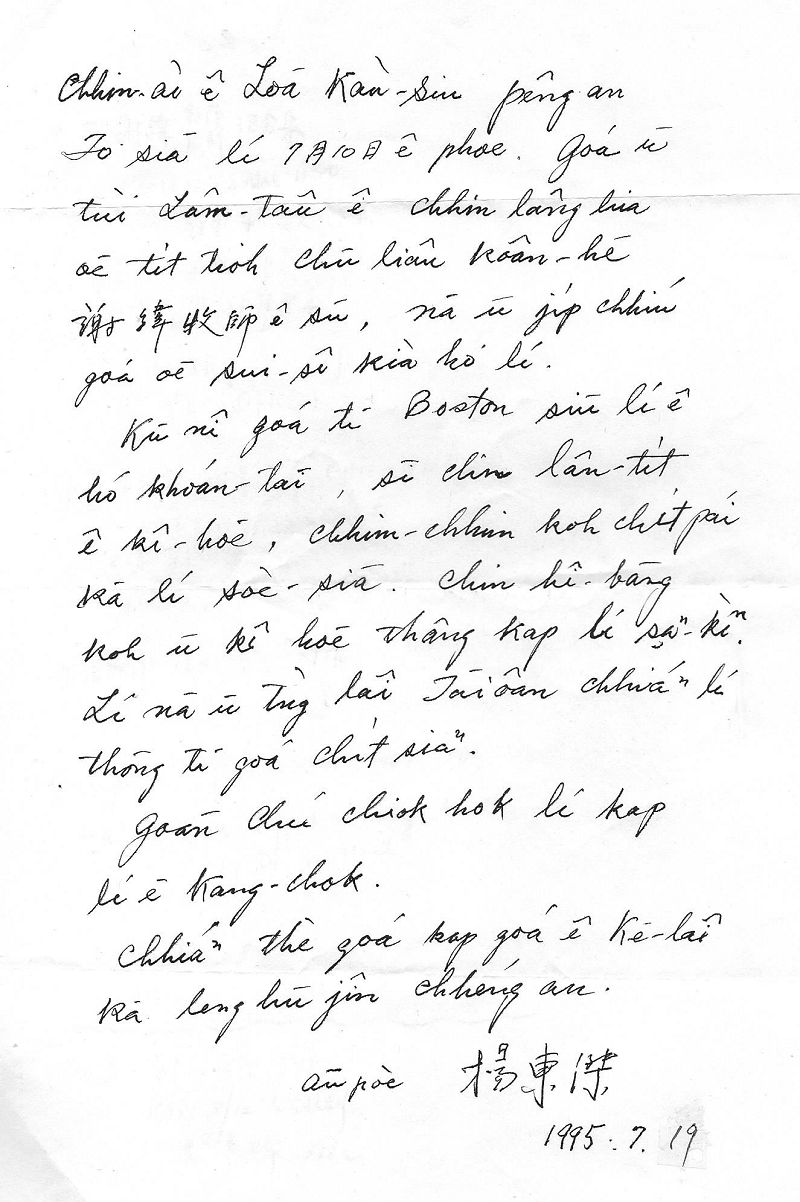 Chhin-ài ê Loā Kàu-siu pêng an
To siā lí 7月10日 ê phoe. Goá ū
tùi Lâm-Taû ê chhin lâng hia
oē tit tioh chū liāu koân-hē
謝緯牧師 ê sū, nā ū ji̍p chhiú
goá oē sui-sî kià hō͘ lí.
Kū nî goá tī Boston siū lí ê
hó khoán-taī, sī chin lân-tit
ê kî-hoē, chhim-chhim koh chi̍t pái
kā lí soè-siā. Chin hi-bāng
koh ū kî hoē thang kap lí saⁿ-kìⁿ.
Lí nā ū tńg laî Tâi oân chhiáⁿ lí
thong ti goá chi̍t siaⁿ.
Goān Chú chiok hok lí kap
lí ê kang-chok.
Chhiáⁿ thè goá kap goá ê Ke-laī
kā leng hū jîn chhéng an.
aū pòe 楊東傑
1995. 7. 19